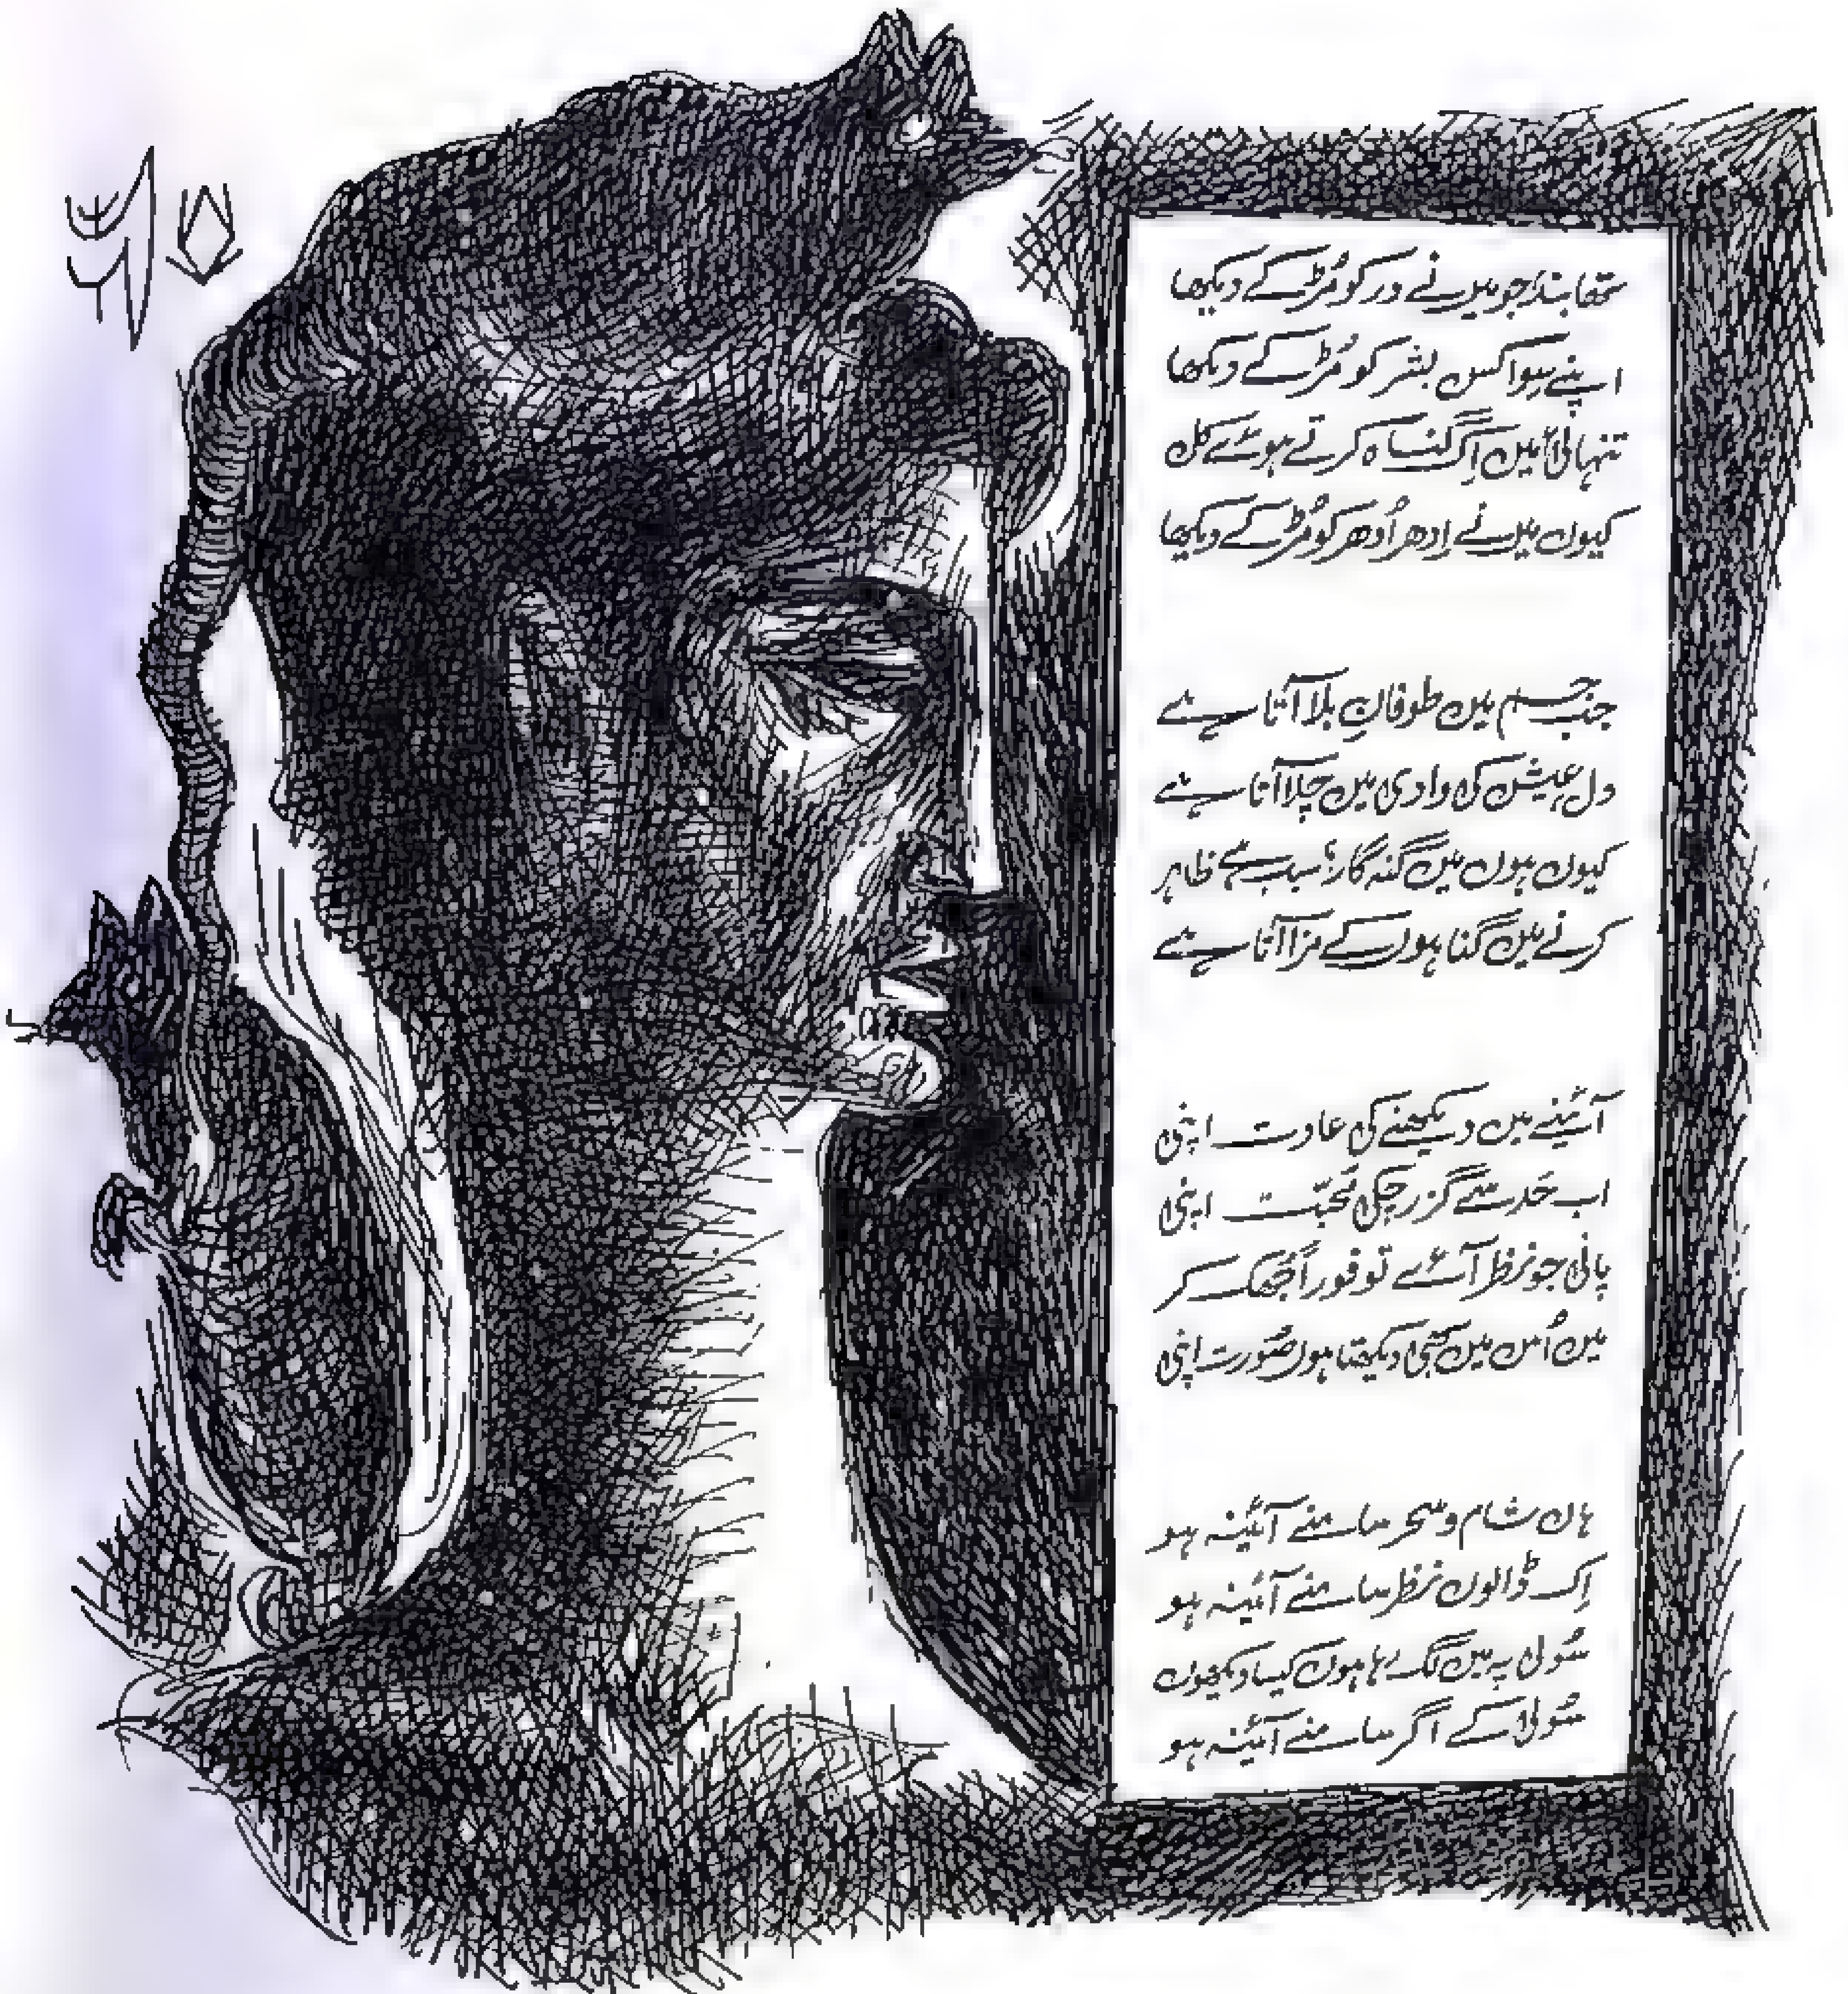 تھا بند، جو میں نے در کو مُڑ کے دیکھا
اپنے سِوا کس بشر کو مُڑ کے دیکھا
تنہائی میں اِک گناہ کرتے ہوئے کل
کیوں میں نے اِدھر اُدھر کو مُڑ کے دیکھا
جب جسم میں طوفانِ بلا آتا ہے
دل عیش کی وادی میں چلا آتا ہے
کیوں ہوں میں گنہ گار؛ سبب ہے ظاہر
کرنے میں گناہوں کے مزا آتا ہے
آئینے میں دیکھنے کی عادت اپنی
اب حَد سے گزر چکی مُحبّت اپنی
پانی جو نظر آئے تو فوراً جُھک کر
میں اُس میں بھی دیکھتا ہوں صُورت اپنی
ہاں شام و سحر سامنے آئینہ ہو
اِک ڈالوں نظر سامنے آئینہ ہو
سُولی پہ میں لگ رہا ہوں کیسا دیکھوں
سُولی کے اگر سامنے آئینہ ہو